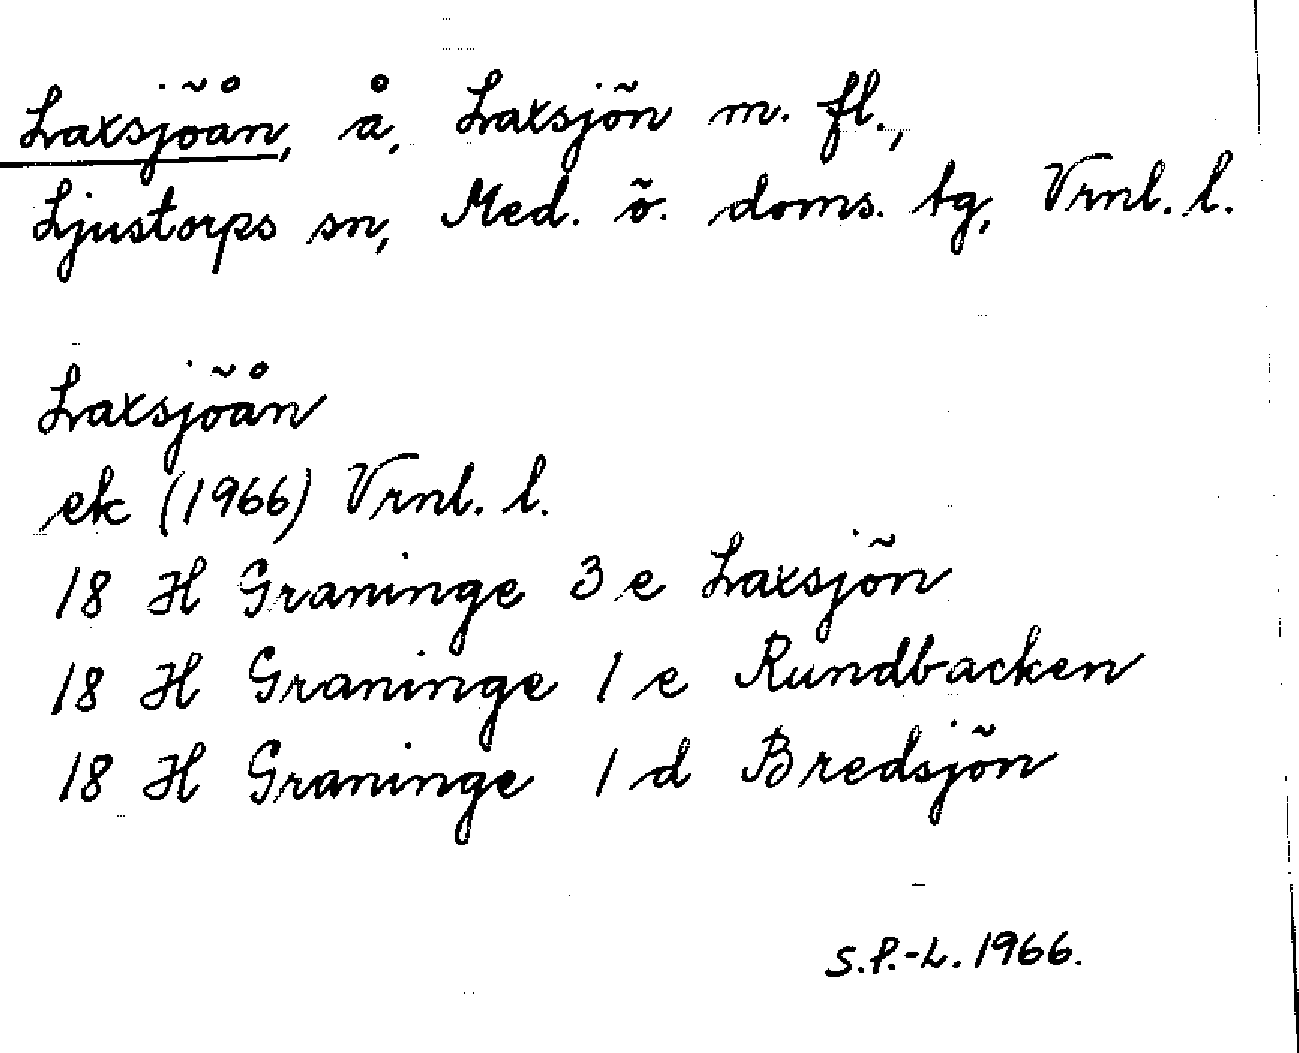 Laxsjöån, å, Laxsjön m. fl.,
Ljustorps sn, Med. ö. doms. tg, Vrnl. l.
Laxsjöån
ek (1966) Vrnl. l.
18 H Graninge 3 e Laxsjön
18 H Graninge 1 e Rundbacken
18 H Graninge 1 d Bredsjön
S.P.-L. 1966.